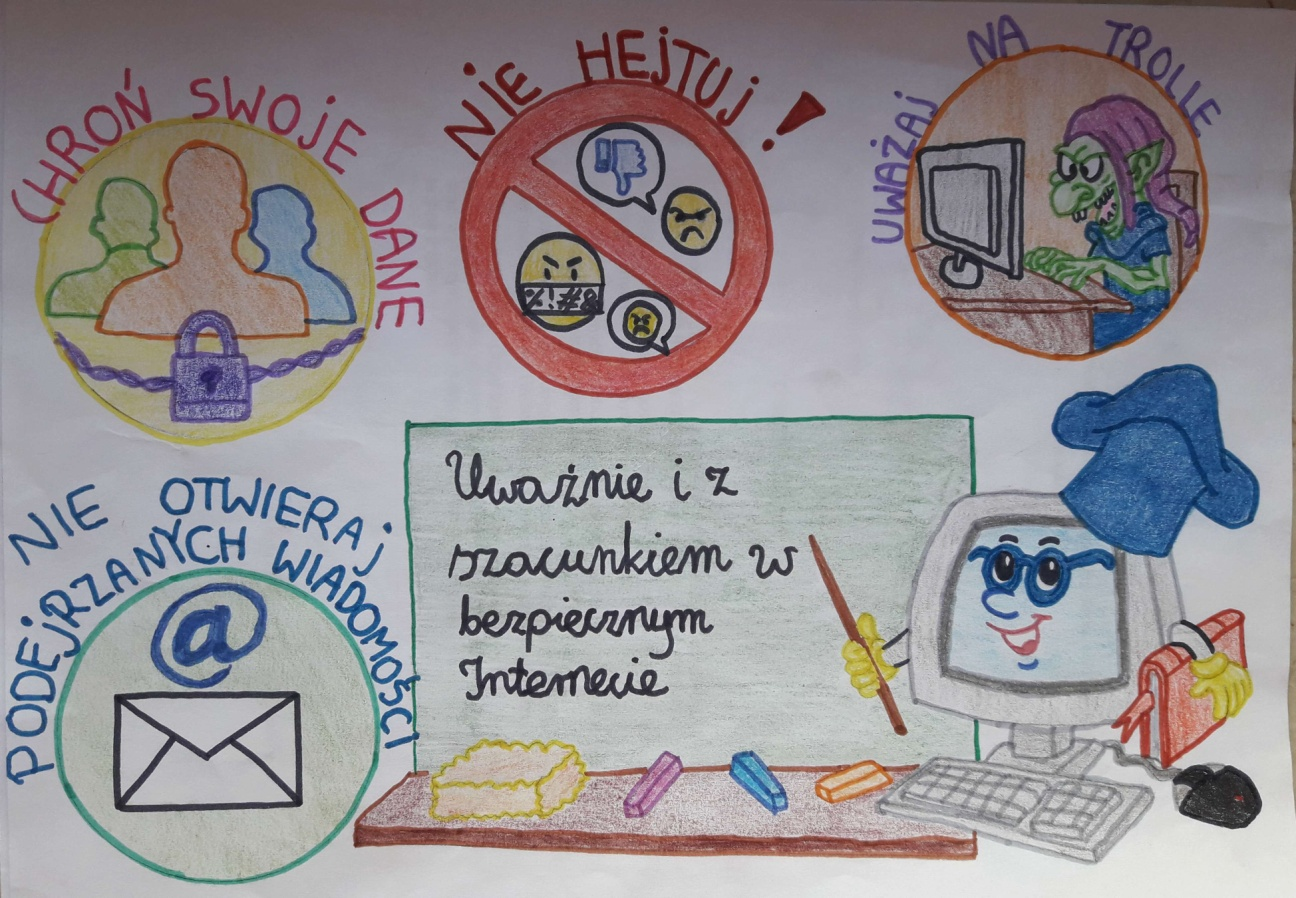 CHROŃ SWOJE DANE
NIE HEJTUJ!
%!#&
UWAŻAJ NA TROLLE
NIE OTWIERAJ
PODEJRZANYCH WIADOMOŚCI
@
Uważnie i z
szacunkiem w
bezpiecznym
Internecie